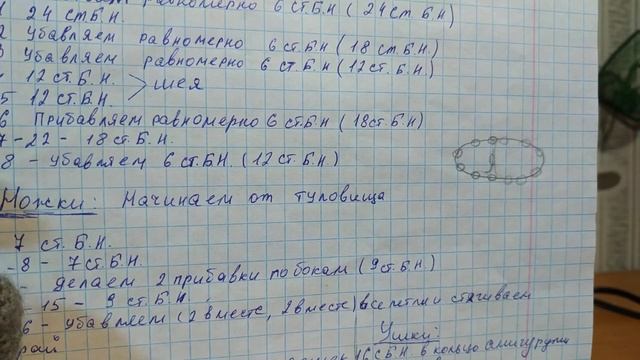 равномерно 6 ст.Б.Н (24 ст Б.Н)
24 ст.Б.Н.
2 Убавляем равномерно 6 ст.Б.Н (18 ст.Б.Н)
3 Убавляем равномерно 6 ст.Б.Н (12 ст.Б.Н.)
12 ст.Б.Н. > шея
5 12 ст.Б.Н.
6 Прибавляем равномерно 6 ст.Б.Н (18 ст.Б.Н)
7-22 - 18 ст.Б.Н.
8 - убавляем 6 ст.Б.Н. (12 ст.Б.Н.)
Ножки: Начинаем от туловища
7 ст.Б.Н.
-8 - 7 ст.Б.Н.
- делаем 2 прибавки по бокам (9 ст.Б.Н.)
15 - 9 ст.Б.Н.
6 - убавляем (2 вместе, 2 вместе) все петли и стягиваем
край
Ушки:
16 СБН. в кольцо амигуруми